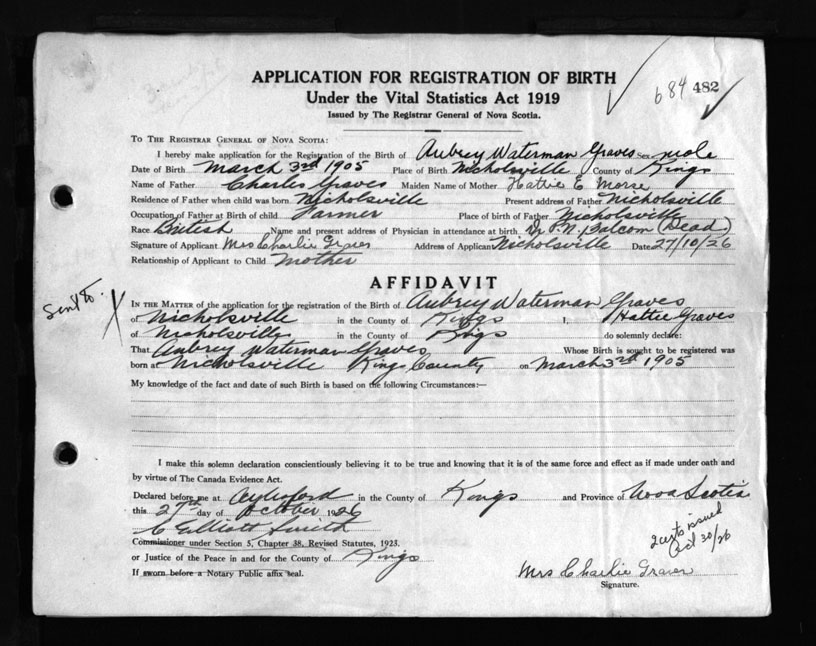 APPLICATION FOR REGISTRATION OF BIRTH
684 482
Under the Vital Statistics Act 1919
Issued by The Registrar General of Nova Scotia.
To The Registrar General of Nova Scotia:
I hereby make application for the Registration of the Birth of Aubrey Waterman Graves Sex male
Date of Birth March 3rd 1905 Place of Birth Nicholsville County of Kings
Name of Father Charles Graves Maiden Name of Mother Hattie E Morse
Residence of Father when child was born Nicholsville Present address of Father Nicholsville
Occupation of Father at Birth of child Farmer Place of birth of Father Nicholsville
Race British Name and present address of Physician in attendance at birth Dr P.N. Balcom (Dead)
Signature of Applicant Mrs Charlie Graves Address of Applicant Nicholsville Date 27/10/26
Relationship of Applicant to Child Mother
AFFIDAVIT
Sent to.
In the Matter of the application for the registration of the Birth of Aubrey Waterman Graves
of Nicholsville in the County of Kings I, Hattie Graves
of Nicholsville in the County of Kings do solemnly declare:
That Aubrey Waterman Graves Whose Birth is sought to be registered was
born at Nicholsville Kings County on March 3rd 1905
My knowledge of the fact and date of such Birth is based on the following Circumstances:—
I make this solemn declaration conscientiously believing it to be true and knowing that it is of the same force and effect as if made under oath and
by virtue of The Canada Evidence Act.
Declared before me at Aylesford in the County of Kings and Province of Nova Scotia
this 27th day of October 1926
C Elliott Smith
Commissioner under Section 5, Chapter 38, Revised Statutes, 1923.
or Justice of the Peace in and for the County of Kings
If sworn before a Notary Public affix seal.
2 certs issued
Oct 30/26
Mrs Charlie Graves
Signature.